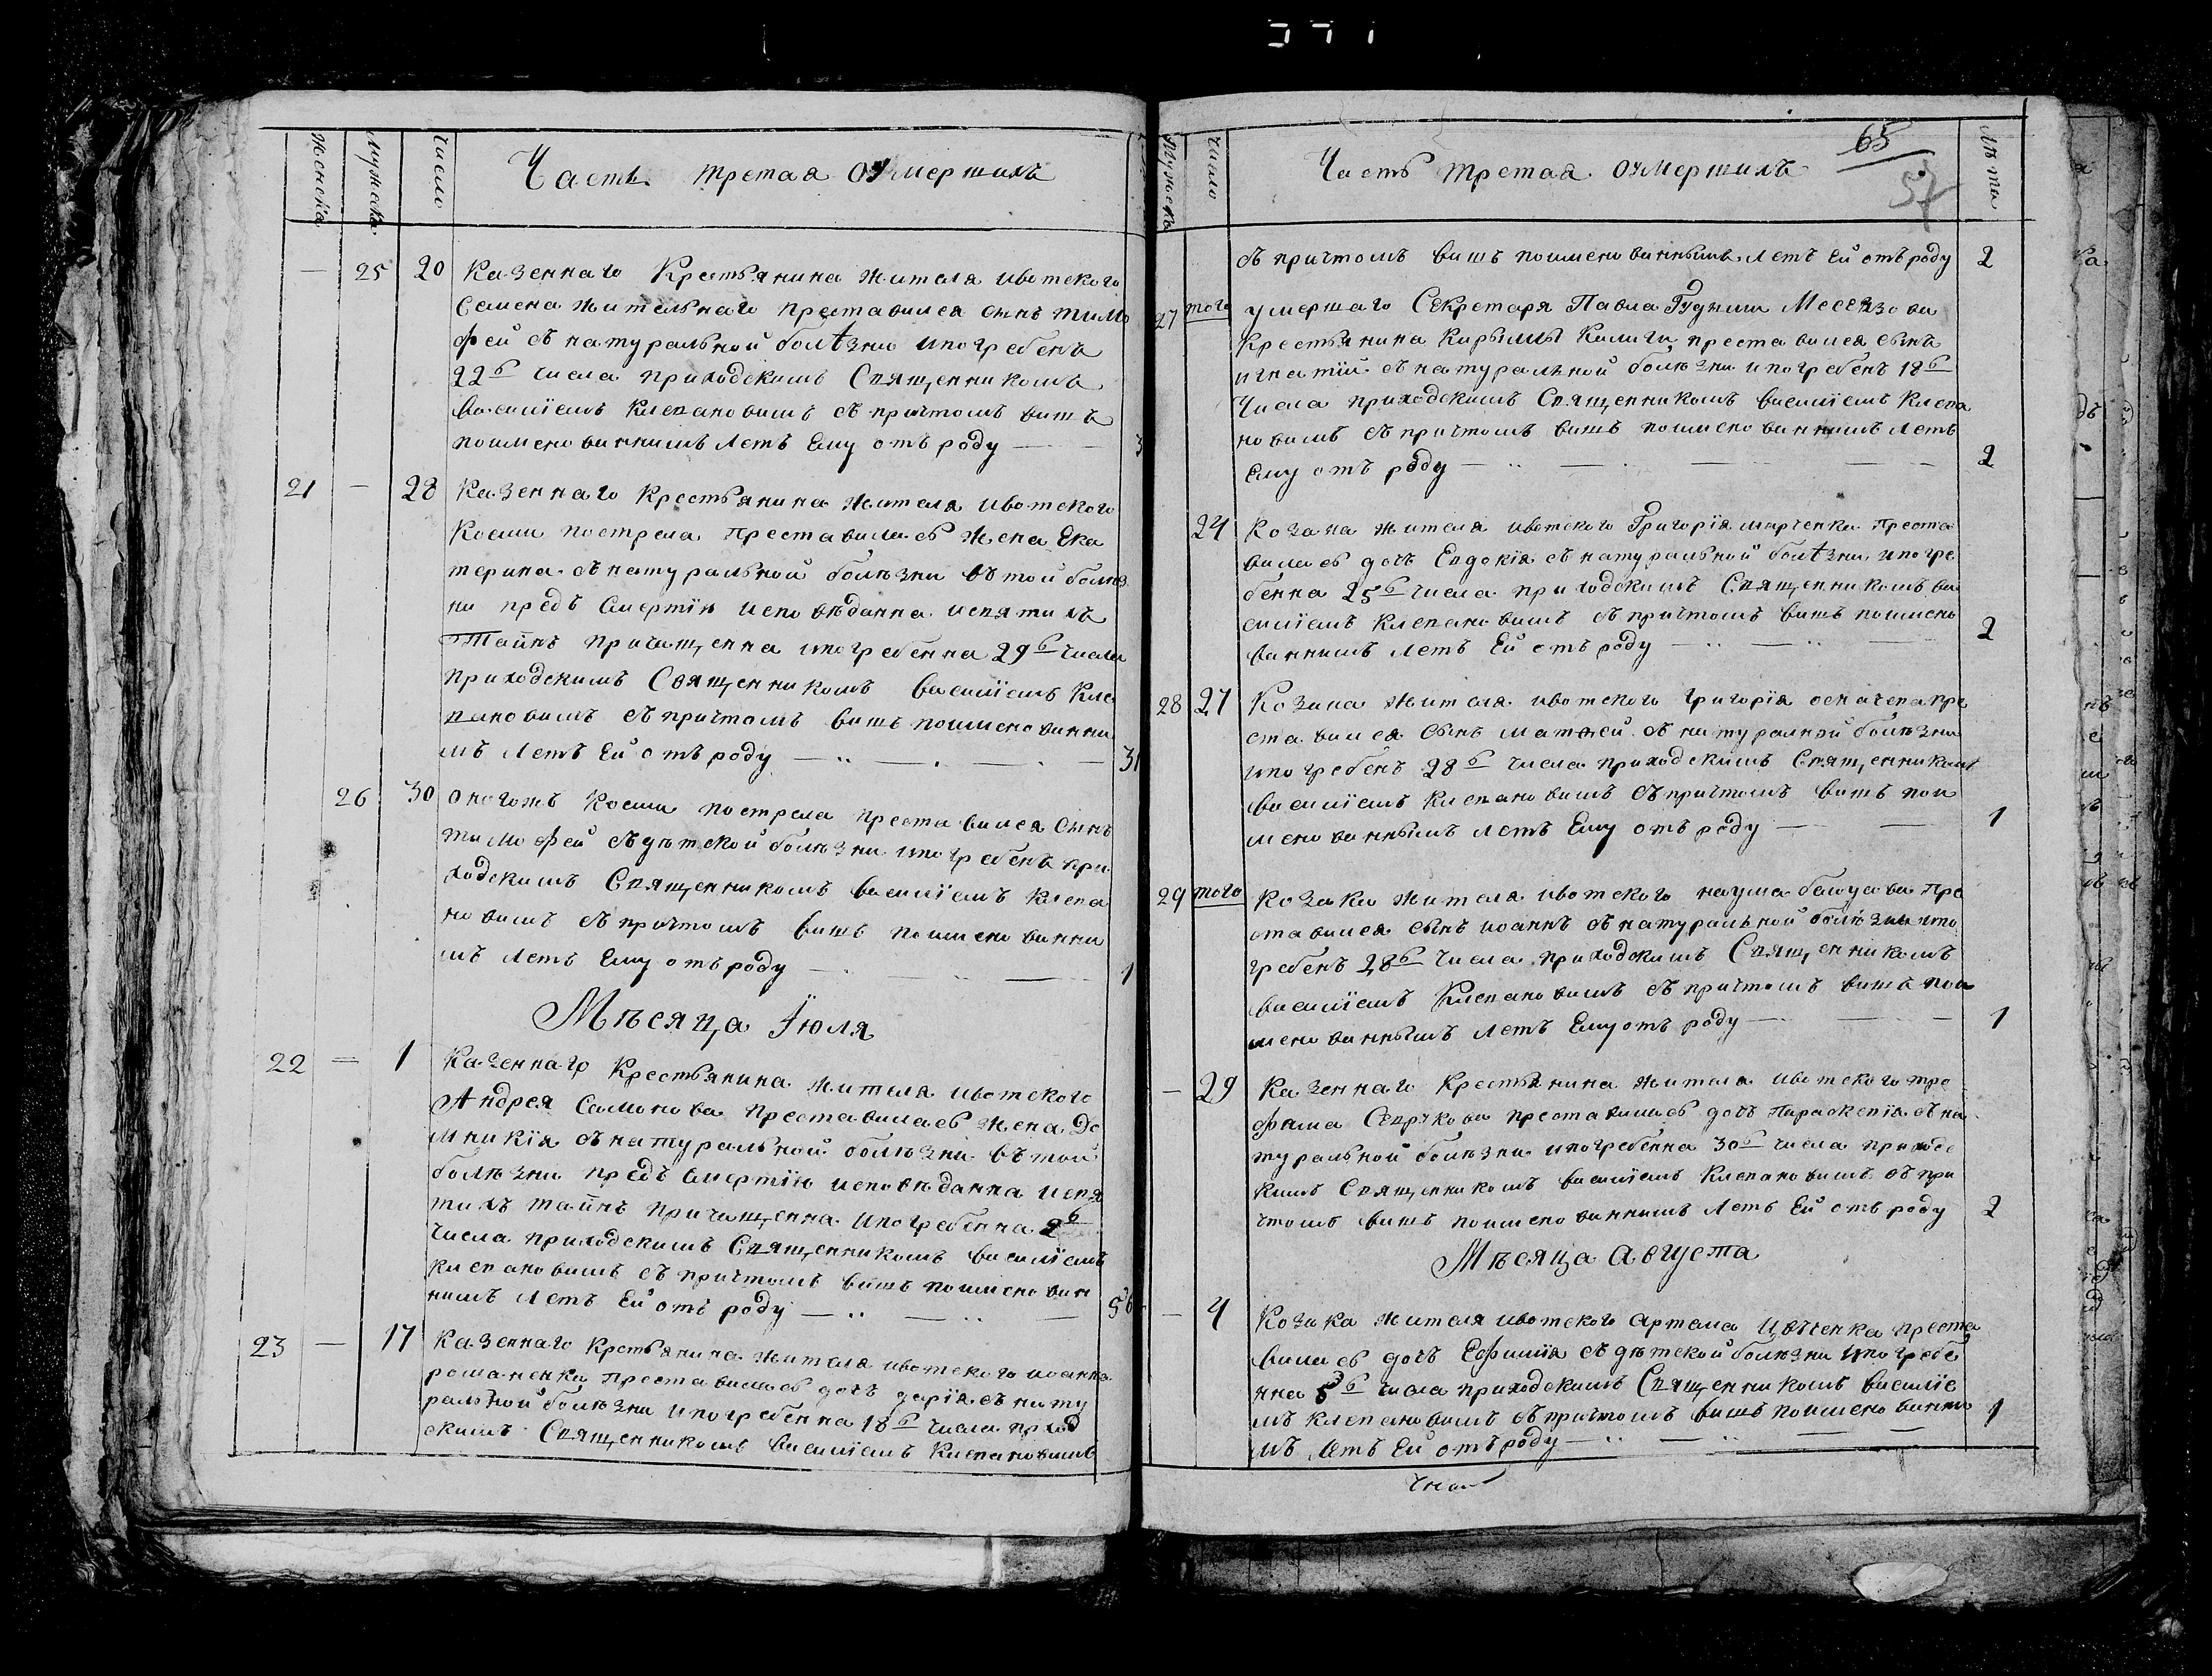 Женска Мужеска Число Часть третая оумершихъ
— 25 20 Казеннаго Крестьянина жителя ивотского
Семена жительнаго преставился сынъ тимо
фей съ натуральной болѣзни и погребенъ
22б числа приходскимъ Священникомъ
василіемъ Клепановимъ съ причтомъ вишъ
поименованнимъ летъ Ему отъ роду — — 3
21 — 28 Казеннаго Крестьянина жителя ивотского
Косми пострела преставилась жена Ека
терина съ натуральной болѣзни въ той болѣз
ни предъ смертію исповѣданна исвятихъ
Тайнъ причащенна и погребенна 29б числа
приходскимъ Священникомъ василіемъ Кле
пановимъ съ причтомъ вишъ поименованни
мъ летъ Ей отъ роду — 31
26 30 оногожъ Косми пострела преставился сынъ
тимофей съ дѣтской болѣзни и погребенъ при
ходскимъ Священникомъ василіемъ Клепа
новимъ съ причтомъ вишъ поименованни
мъ летъ Ему отъ роду — 1
Мѣсяца Іюля
22 — 1 Казеннаго Крестьянина жителя ивотского
Андрея Самонова преставилась жена До
мникія съ натуральной болѣзни въ той
болѣзни предъ смертію исповѣданна исвя
тихъ тайнъ причащенна и погребенна 2б
числа приходскимъ Священникомъ василіемъ
клепановимъ съ причтомъ вишъ поименован
нимъ летъ Ей отъ роду — 56
23 — 17 Казеннаго Крестьянина жителя ивотского иоанна
романенка преставилась дочь дарія съ нату
ральной болѣзни и погребенна 18б числа приход
скимъ Священникомъ василіемъ Клепановимъ
Мужескъ Число Часть третая оумершихъ 65 Лѣта
57
съ причтомъ вишъ поименованнымъ летъ Ей отъ роду 2
27 того умершаго Секретаря Павла
Крестьянина Кирылы Калиги преставился сынъ
игнатій съ натуральной болѣзни и погребенъ 18б
Числа приходскимъ Священникомъ василіемъ Клепа
новимъ съ причтомъ вишъ поименованнимъ летъ
ему отъ роду — 2
24 Козака жителя ивотского Григорія марченка преста
вилась дочъ Евдокія съ натуральной болѣзни и погре
бенна 25б числа приходскимъ Священникомъ ва
силіемъ клепановимъ съ причтомъ вишъ поимено
ваннимъ летъ Ей отъ роду — 2
28 27 Козака жителя ивотского григорія осначепа пре
ставился сынъ матфей съ натуралной болѣзни
и погребенъ 28б числа приходскимъ Священникомъ
василіемъ клепановимъ съ причтомъ вишъ пои
менованнымъ летъ Ему отъ роду — 1
29 того Козака жителя ивотского наума белоусова пре
ставился сынъ иоаннъ съ натуральной болѣзни и по
гребенъ 28б числа приходскимъ Священникомъ
василіемъ Клепановимъ съ причтомъ вишъ пои
менованнымъ летъ Ему отъ роду — 1
— 29 Казеннаго Крестьянина жителя ивотского тро
фима преставилась дочъ Параскевія съ на
туральной болѣзни и погребенна 30б числа приходс
кимъ Священникомъ василіемъ клепановимъ съ при
чтомъ вишъ поименованнимъ летъ Ей отъ роду 2
Мѣсяца Августа
— 4 Козака жителя ивотского артема Ивченка преста
вилась дочъ Ефимія съ дѣтской болѣзни и погребе
нна 5б числа приходскимъ Священникомъ василіе
мъ клепановимъ съ причтомъ вишъ поименованни
мъ летъ Ей отъ роду — 1